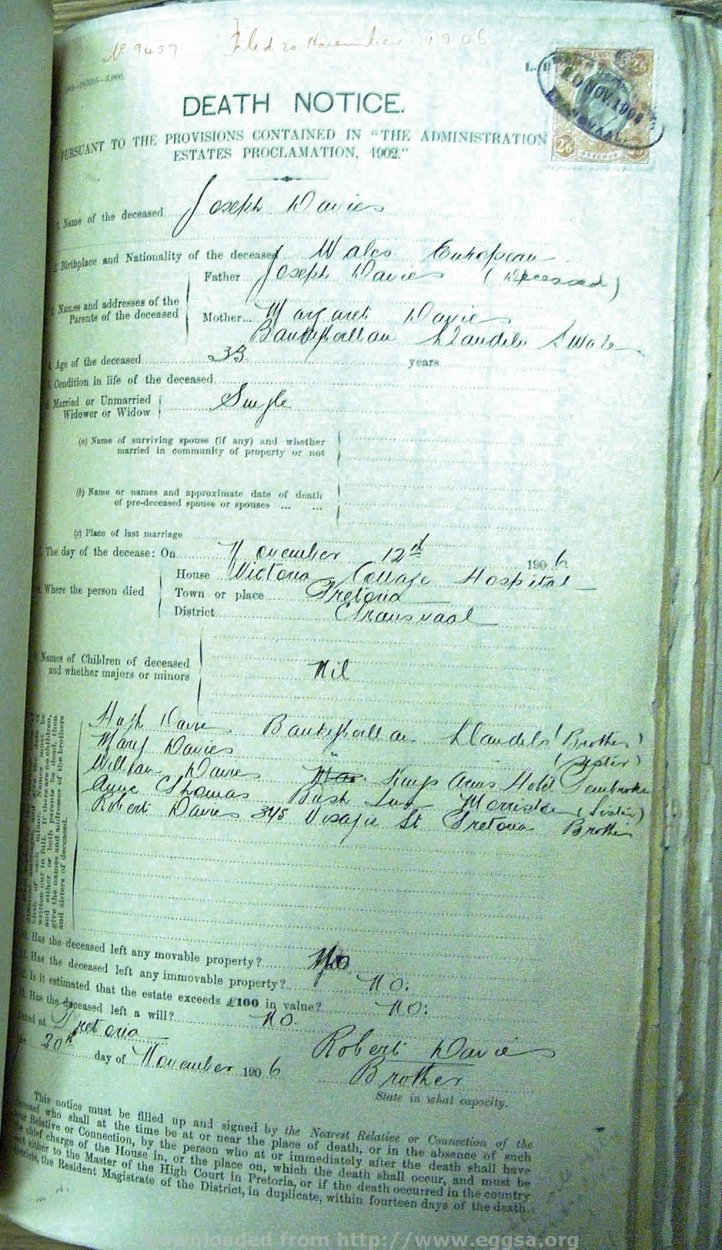 No 9457 Filed 20 November 1906
DEATH NOTICE.
PURSUANT TO THE PROVISIONS CONTAINED IN "THE ADMINISTRATION
ESTATES PROCLAMATION, 1902."
1. Name of the deceased Joseph Davies
2. Birthplace and Nationality of the deceased Wales European
3. Names and addresses of the Parents of the deceased
Father Joseph Davies (Deceased)
Mother Margaret Davies
Llandilo S Wales
4. Age of the deceased 33 years
5. Condition in life of the deceased
6. Married or Unmarried
Widower or Widow
Single
(a) Name of surviving spouse (if any) and whether
married in community of property or not
(b) Name or names and approximate date of death
of pre-deceased spouse or spouses ... ...
(c) Place of last marriage
7. The day of the decease: On November 12th 1906
8. Where the person died
House Victoria Cottage Hospital
Town or place Pretoria
District Transvaal
9. Names of Children of deceased
and whether majors or minors
Nil
written out in full. If there are no children,
and either or both parents be dead, then
give the names and addresses of the brothers
and sisters of deceased.
Hugh Davies Llandilo (Brother)
Mary Davies (Sister)
William Davies Kings Arms Hotel Pembroke
Anne Thomas Bush Inn Morriston (Sister)
Robert Davies 345 St Pretoria Brother
10. Has the deceased left any movable property? No
11. Has the deceased left any immovable property? No.
12. Is it estimated that the estate exceeds £100 in value? No.
13. Has the deceased left a will? No.
Dated at Pretoria
the 20th day of November 1906
Robert Davies
Brother
State in what capacity.
This notice must be filled up and signed by the Nearest Relative or Connection of the
deceased who shall at the time be at or near the place of death, or in the absence of such
near Relative or Connection, by the person who at or immediately after the death shall have
the chief charge of the House in, or the place on, which the death shall occur, and must be
sent either to the Master of the High Court in Pretoria, or if the death occurred in the country
districts, the Resident Magistrate of the District, in duplicate, within fourteen days of the death.
Downloaded from http://www.eggsa.org